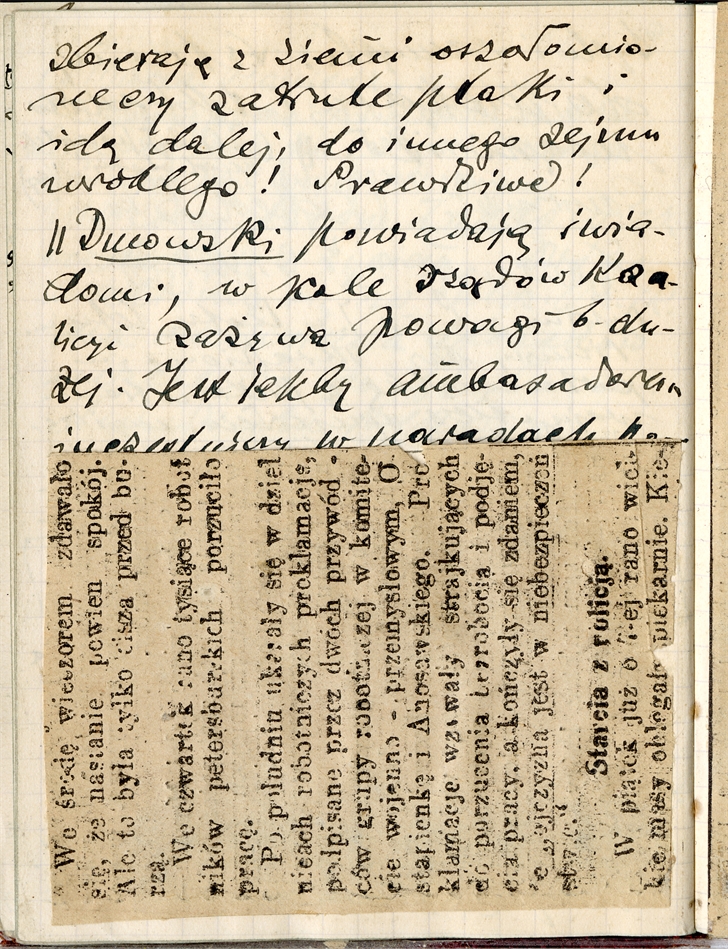 zbierają z ziemi oszołomio-
rzeczy zatrute ptaki i
idą dalej, do innego zejmu
wrobłego! Prawdziwe!
Dmowski powiadają świa-
domi, w kole rządów Koa-
licyi zażywa powagi b. du-
żej. Jest jakby ambasadorem
w naradach
We środę wieczorem zdawało
się, że nastanie pewien spokój.
Ale to była tylko cisza przed bu-
rzą.
We czwartek rano tysiące robot
ników petersburskich porzuciło
pracę.
Po południu ukazały się w dziel
nicach robotniczych proklamacje,
podpisane przez dwóch przywód-
ców grupy robotniczej w komite-
cie wojenno-przemysłowym, O
stapienkę i Anosowskiego. Pro
klamacje wzywały strajkujących
do porzucenia bezrobocia i podję-
cia pracy, a kończyły się zdaniem,
że „ojczyzna jest w niebezpieczeń
stwie".
Starcia z policją.
W piątek już o 7-ej rano wiel-
kie masy oblegały piekarnie. Kie-